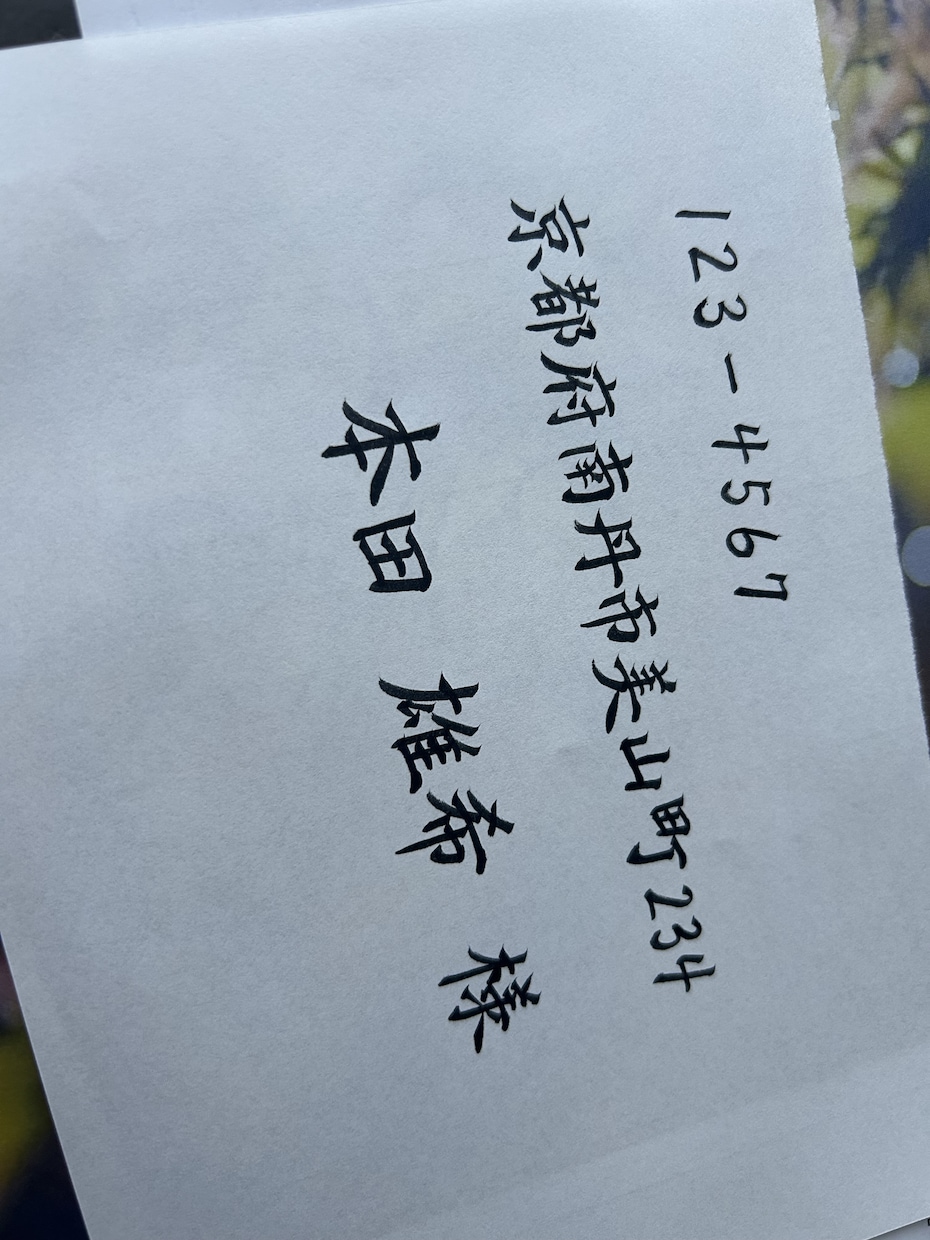 123-4567
京都府南丹市美山町234
本田 雄希 様